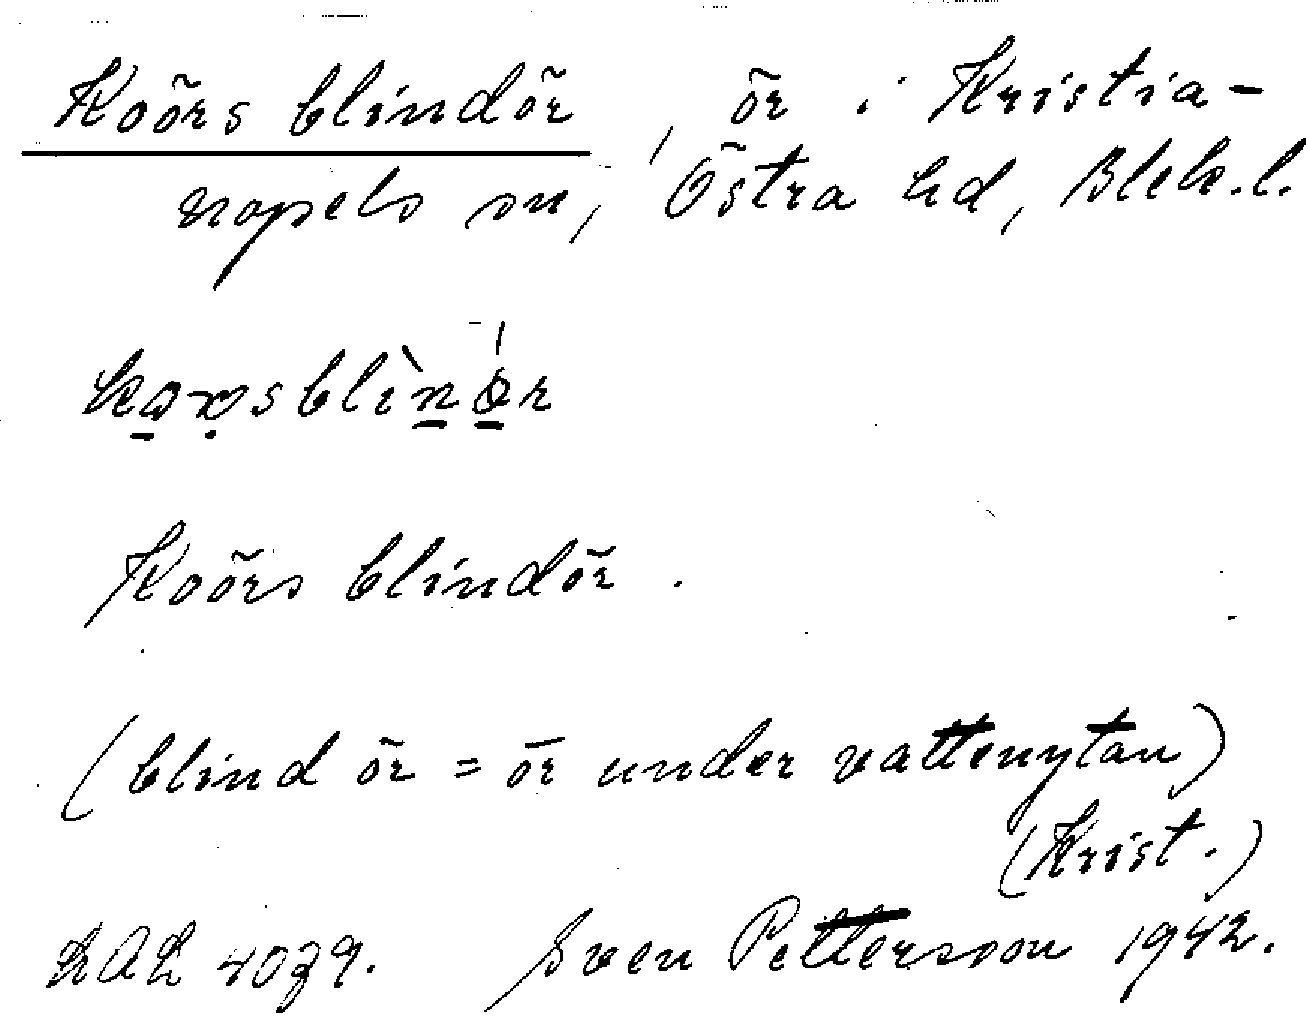 Koörs blindör, ör i Kristia-
nopels sn, Östra hd, Blek.l.
Koörs blindör.
(blind ör = ör under vattenytan)
(Krist.)
LAL Sven Pettersson 1942.